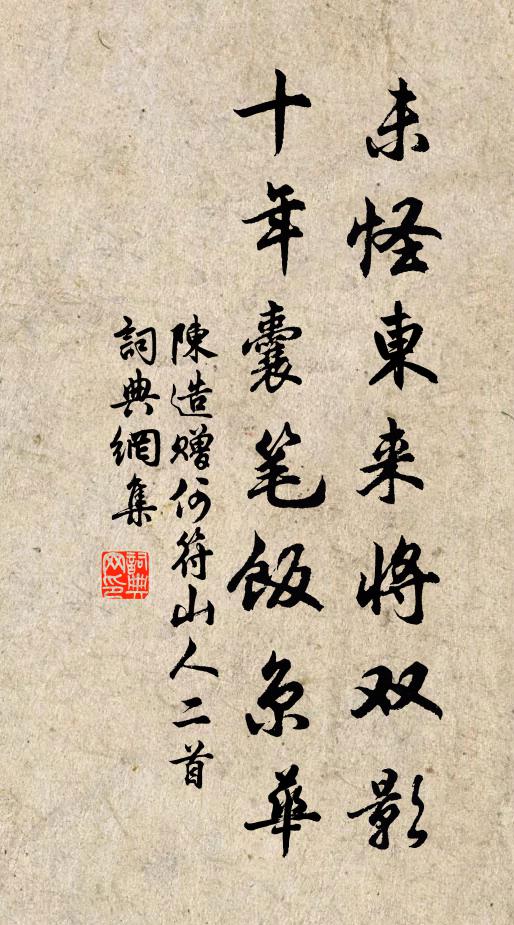 未怪東来将双影
十年囊笔飯京華
陳造贈何符山人二首
詞典網集
詞典网印